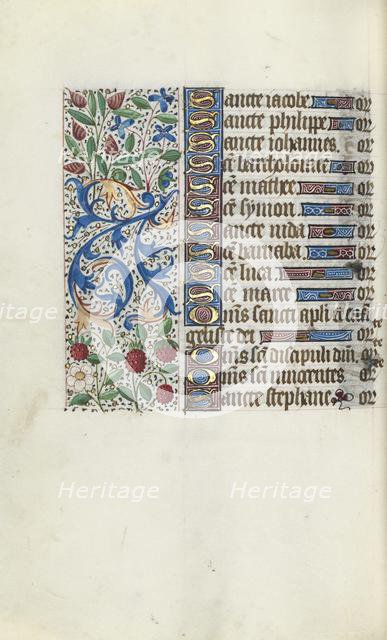 Sancte iacobe or
Sancte philippe or
Sancte iohannes or
Sce bartholomee or
Sce mathee or
Sce symon or
Sancte iuda or
Sce barnaba or
Sce luca or
Sce marce or
Omīs sancti apl'i et eu
geliste dei or
Omīs sci discipuli dni or
Omīs sci innocentes or
Sancte stephane or
Heritage
Heritage
Heritage
Heritage